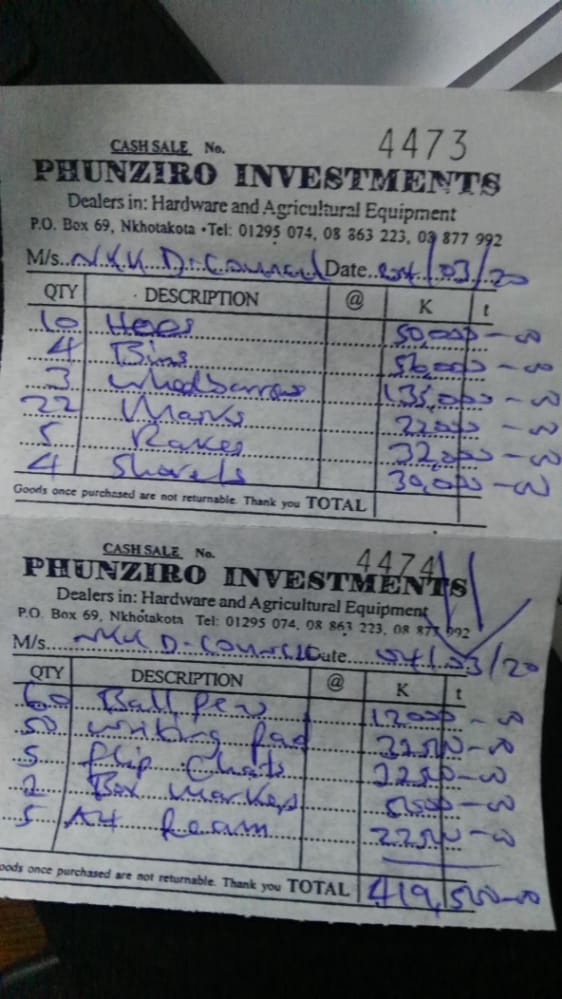 CASH SALE No. 4473
PHUNZIRO INVESTMENTS
Dealers in: Hardware and Agricultural Equipment
P.O. Box 69, Nkhotakota •Tel: 01295 074, 08 863 223, 08 877 992
M/s. NKK D. Council Date 04/03/20
QTY DESCRIPTION @ K t
10 Hoes 50,000-00
4 Bins 56,000-00
3 wheelbarrows 135,000-00
22 22000-00
5 Rakes 32,000-00
4 Shovels 30,000-00
Goods once purchased are not returnable. Thank you TOTAL
CASH SALE No. 4474
PHUNZIRO INVESTMENTS
Dealers in: Hardware and Agricultural Equipment
P.O. Box 69, Nkhotakota Tel: 01295 074, 08 863 223, 08 877 992
M/s. NKK D. Council Date 04/03/20
QTY DESCRIPTION @ K t
60 Ball pen 12000-00
50 writing pad -00
5 flip Chats 22500-00
2 Box Markers 5,500-00
5 A4 Ream 22500-00
oods once purchased are not returnable. Thank you TOTAL 419,500-00